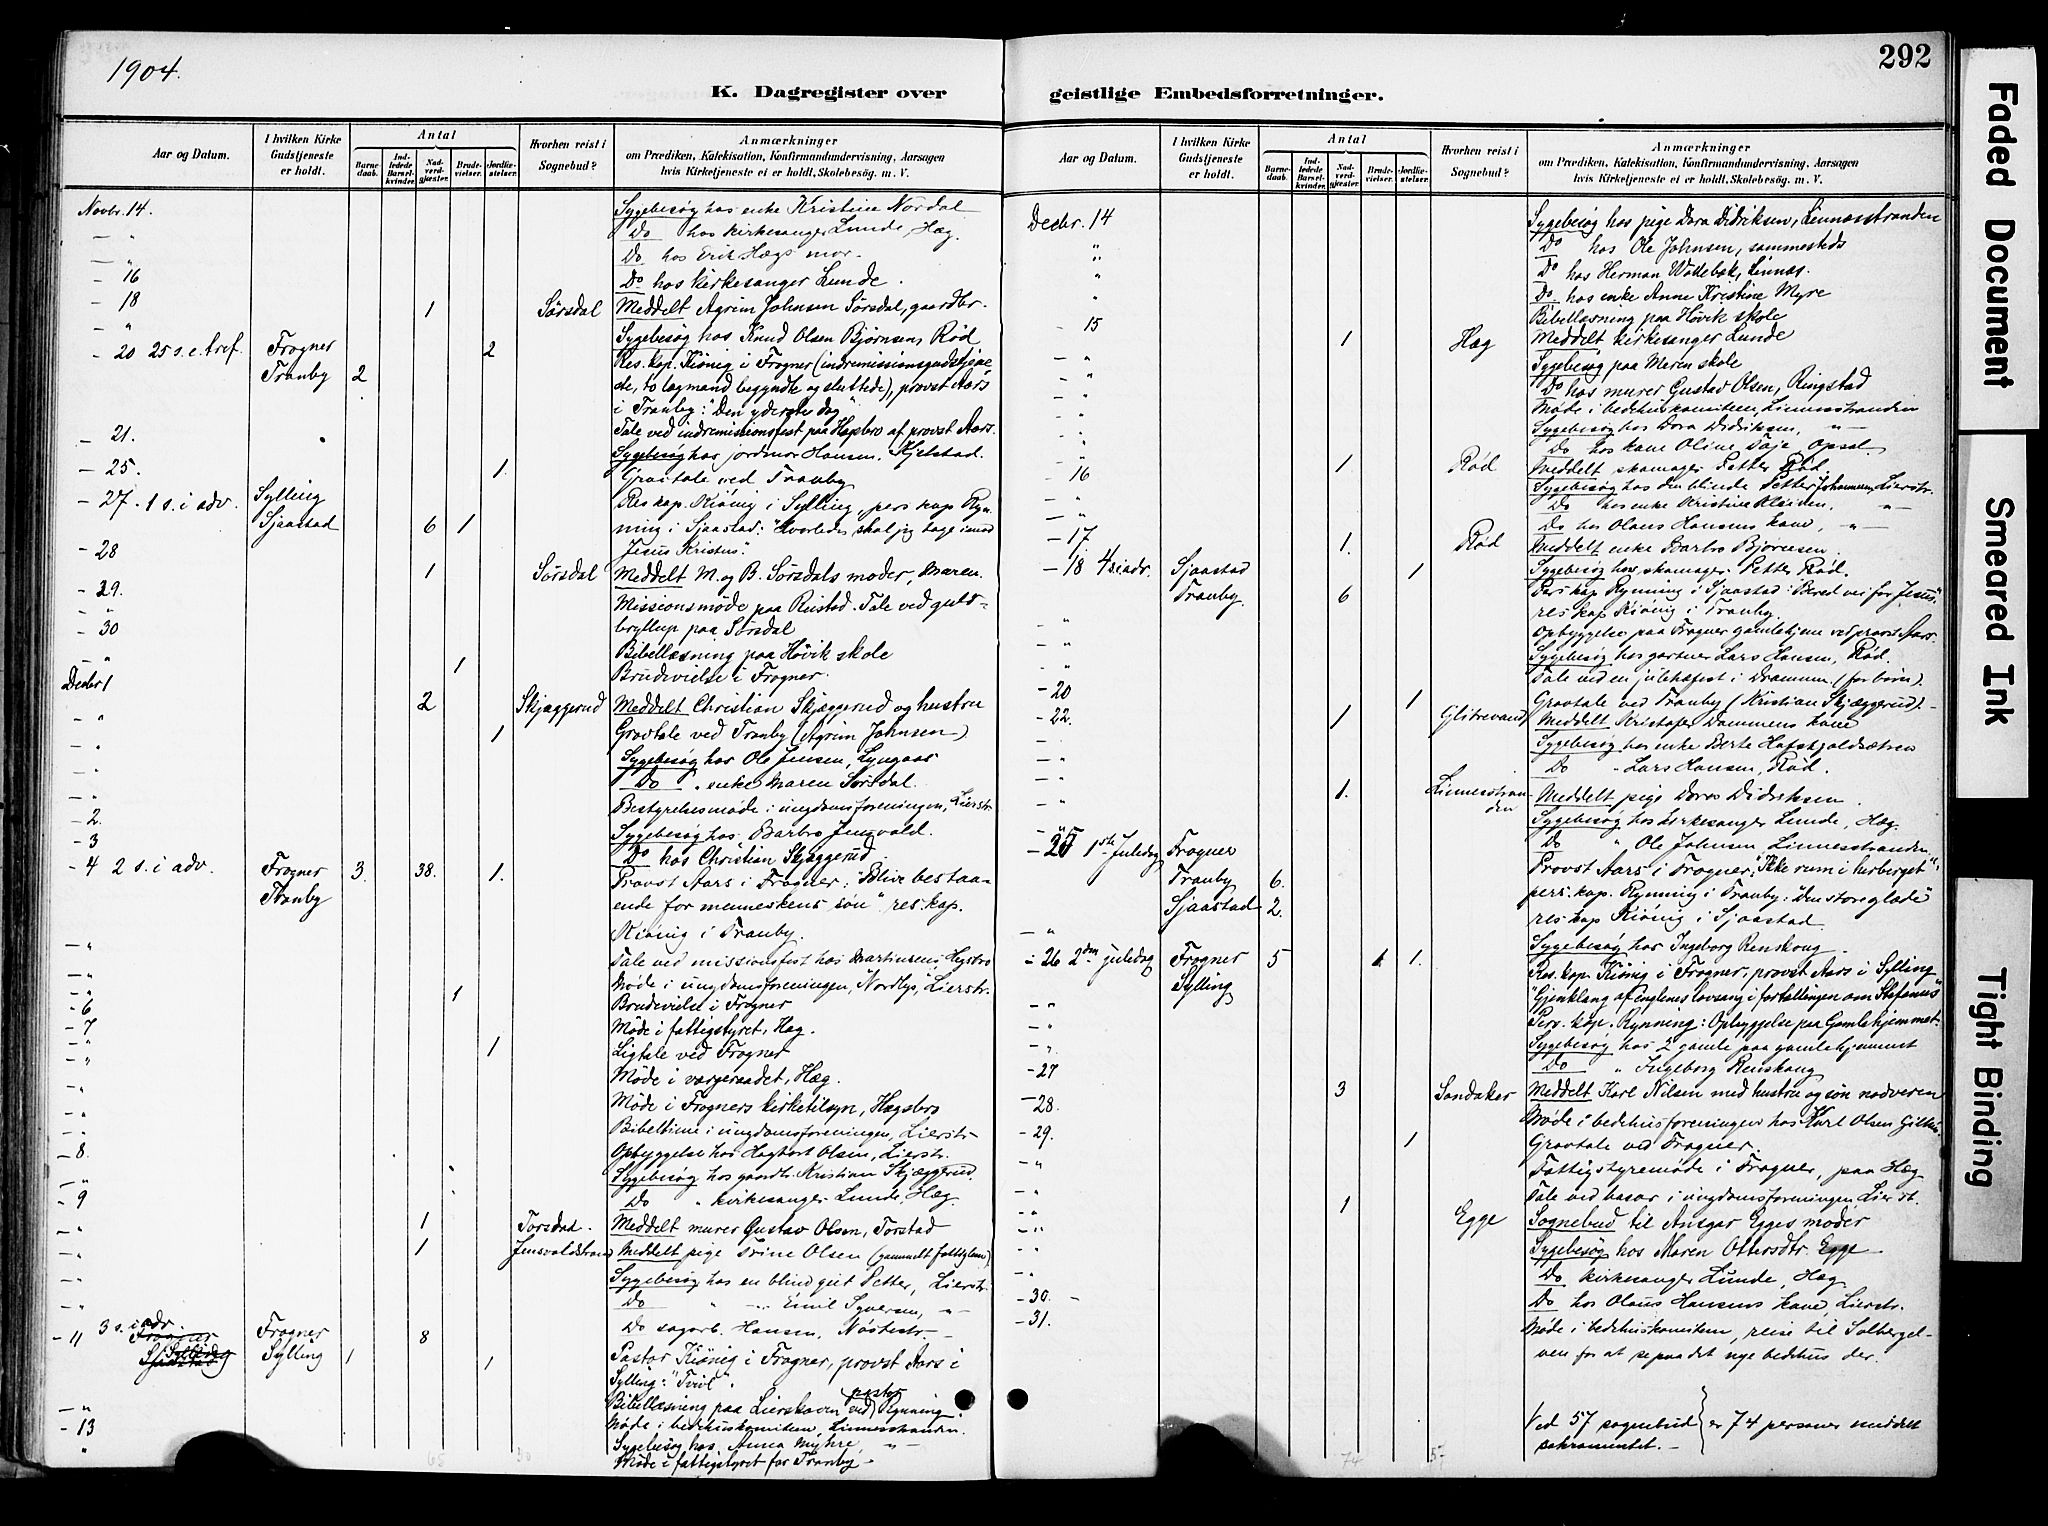 1904.
292
K. Dagregister over geistlige Embedsforretninger.
Aar og Datum.
I hvilken Kirke Gudstjeneste er holdt.
Antal
Barnedaab.
Indledede Barselkvinder.
Nadverdgjæster.
Brudevielser.
Jordfæstelser.
Hvorhen reist i Sognebud?
Anmærkninger
om Prædiken, Katekisation, Konfirmandundervisning, Aarsagen
hvis Kirketjeneste ei er holdt, Skolebesøg. m. V.
Novbr. 14. Sygebesøg hos enke Kristine Nordal
— " Do hos kirkesanger Lunde, Hæg.
— " Do hos Erik Hægs mor.
— 16 Do hos kirkesanger Lunde.
— 18 1 Sørsdal Meddelt Agrim Johnsen Sørsdal, gaardbr.
— " Sygebesøg hos Knud Olsen Bjørnsen, Rød
— 20 25 s. e. tref. Frogner 2 Res. kap. Kiønig i Frogner (indremissionsgudstjene
Tranby 2 de, to lægmænd begyndte og sluttede), provst Aars
i Tranby: "Den yderste dag"
— 21. Tale ved indremissionsfest paa Hægsbro af provst Aars.
Sygebesøg hos jordmor Hansen, Kjelstad.
— 25. 1. Gravtale ved Tranby
— 27. 1 s. i adv. Sylling Res kap. Kiønig i Sylling, pers. kap. Ryn-
Sjaastad 6 1 ning i Sjaastad: "Hvorledes skal jeg tage imod
Jesus Kristus".
— 28 1 Sørsdal Meddelt M. og B. Sørsdals moder, Maren.
— 29. Missionsmøde paa Rustad. Tale ved guld-
bryllup paa Sørsdal
— 30 Bibellæsning paa Høvik skole
— " 1 Brudevielse i Frogner.
Decbr 1 2 Skjæggerud Meddelt Christian Skjæggerud og hustru
— " 1 Gravtale ved Tranby (Agrim Johnsen)
— " Sygebesøg hos Ole Jensen, Lyngaas
— " Do " enke Maren Sørsdal.
— " Bestyrelsesmøde i ungdomsforeningen, Lierstr.
— 2. Sygebesøg hos Barbro Jensvold.
— 3 Do hos Christian Skjæggerud.
— 4 2 s. i adv. Frogner 3. 38. 1. Provst Aars i Frogner: "Blive bestaa-
Tranby ende for menneskens søn". res. kap.
Kiønig i Tranby.
— " Tale ved missionsfest hos Martinsen, Hegsbro
— " Møde i ungdomsforeningen, "Nordlys", Lierstr.
— " 1 Brudevielse i Frogner
— 6 Møde i fattigstyret, Hæg.
— 7 1 Ligtale ved Frogner
— " Møde i værgeraadet, Hæg.
— " Møde i Frogners kirketilsyn, Hægsbro
— " Bibeltime i ungdomsforeningen, Lierstr.
— 8. Opbyggelse hos Hagbart Olsen, Lierstr.
— " Sygebesøg hos gaardbr. Kristian Skjæggerud.
— 9 Do " kirkesanger Lunde, Hæg.
— " 1 Torsdad. Meddelt murer Gustav Olsen, Torstad
— " 1 Jensvoldstrand Meddelt pige Trine Olsen (gammelt fattiglem)
— " Sygebesøg hos en blind gut Petter, Lierstr.
— " Do " Emil Syversen, —"—
Do sagarb. Hansen, Nøstestr.
3 s. i adv.
— 11 Frogner Frogner 8
Sylling Sylling 1 1 Pastor Kiønig i Frogner, provst Aars i
Sylling: "Tvivl".
pastor
— " Bibellæsning paa Lierskoven ved Rynning.
— 13 Møde i bedehuskomiteen, Linnesstranden.
" Sygebesøg hos Anna Myhre, —"—
Møde i fattigstyret for Tranby —
65 30
Aar og Datum.
I hvilken Kirke Gudstjeneste er holdt.
Antal
Barnedaab.
Indledede Barselkvinder.
Nadverdgjæster.
Brudevielser.
Jordfæstelser.
Hvorhen reist i Sognebud?
Anmærkninger
om Prædiken, Katekisation, Konfirmandundervisning, Aarsagen
hvis Kirketjeneste ei er holdt, Skolebesøg. m. V.
Decbr. 14 Sygebesøg hos pige Dora Didriksen, Linnesstranden
" Do hos Ole Johnsen, sammesteds
" Do hos Herman Wattebak, Linnes.
" Do hos enke Anne Kristine Myre
" Bibellæsning paa Høvik skole
— 15 1 Hæg Meddelt kirkesanger Lunde
— " Sygebesøg paa Meren skole
— " Do hos murer Gustav Olsen, Ringstad
" Møde i bedehuskomiteen, Linnesstranden
" Sygebesøg hos Dora Didriksen, —"—
" Do hos kone Oline Opsal
— 16 1 Rød Meddelt skomager Petter Rød.
— " Sygebesøg hos den blinde Petter Johannesen, Lierstr.
— " Do hos enke Kristine —"—
— " Do hos Olaus Hansens kone, —"—
— 17 1. Rød Meddelt enke Barbro Bjørnsen.
— 18 4 s i adv. Sjaastad 1 Sygebesøg hos skomager Petter Rød.
Tranby. 6 Pers kap Rynning i Sjaastad: "Bered vei for Jesus",
res kap Kiønig i Tranby.
— " Opbyggelse paa Frogner gamlehjem ved provst Aars.
— " Sygebesøg hos gartner Lars Hansen, Rød.
— " Tale ved en julehæfest i Drammen (for børn).
— 20 1 Gravtale ved Tranby (Kristian Skjæggerud).
— 22. 1 Glitrevand Meddelt Kristofer Dammens kone
— " Sygebesøg hos enke Berte Hafskjoldsætren
— " Do " Lars Hansen, Rød.
— " 1. Linnesstranden Meddelt pige Dora Didriksen
— " Sygebesøg hos kirkesanger Lunde, Hæg.
— " Do " Ole Johnsen Linnesstranden
— 25 1ste Juledag Frogner Provst Aars i Frogner, "Ikke rum i herberget";
Tranby 6. pers. kap. Rynning i Tranby: "Den store glæde"
Sjaastad 2. res kap Kiønig i Sjaastad.
— " Sygebesøg hos Ingeborg Renskoug.
— 26 2den juledag Frogner 5 1 1. Res. kap. Kiønig i Frogner, provst Aars i Sylling
Sylling "Gjenklang af englenes lovsang i fortællingen om Stefanus"
— " Pers. kap. Rynning: Opbyggelse paa Gamlehjemmet.
— " Sygebesøg hos 2 gamle paa gamlehjemmet
— 27 Do " Ingeborg Renskoug
— 28. 3 Sandaker Meddelt Karl Nilsen med hustru og søn nadveren
Møde i bedehusforeningen hos Karl Olsen
— 29. 1 Gravtale ved Frogner.
— " Fattigstyremøde i Frogner, paa Hæg
— " Tale ved basar i ungdomsforeningen, Lierst.
— " 1 Egge Sognebud til Ansgar Egges moder
— " Sygebesøg hos Maren Ottersdtr. Egge
— " Do kirkesanger Lunde, Hæg
— 30. — Do hos Olaus Hansens kone, Lierstr.
— 31. Møde i bedehuskomiteen, reise til Solbergel-
ven for at se paa det nye bedehus der.
Ved 57 sognebud er 74 personer meddelt
sakramentet. —
74 5-
Faded Document
Smeared Ink
Tight Binding